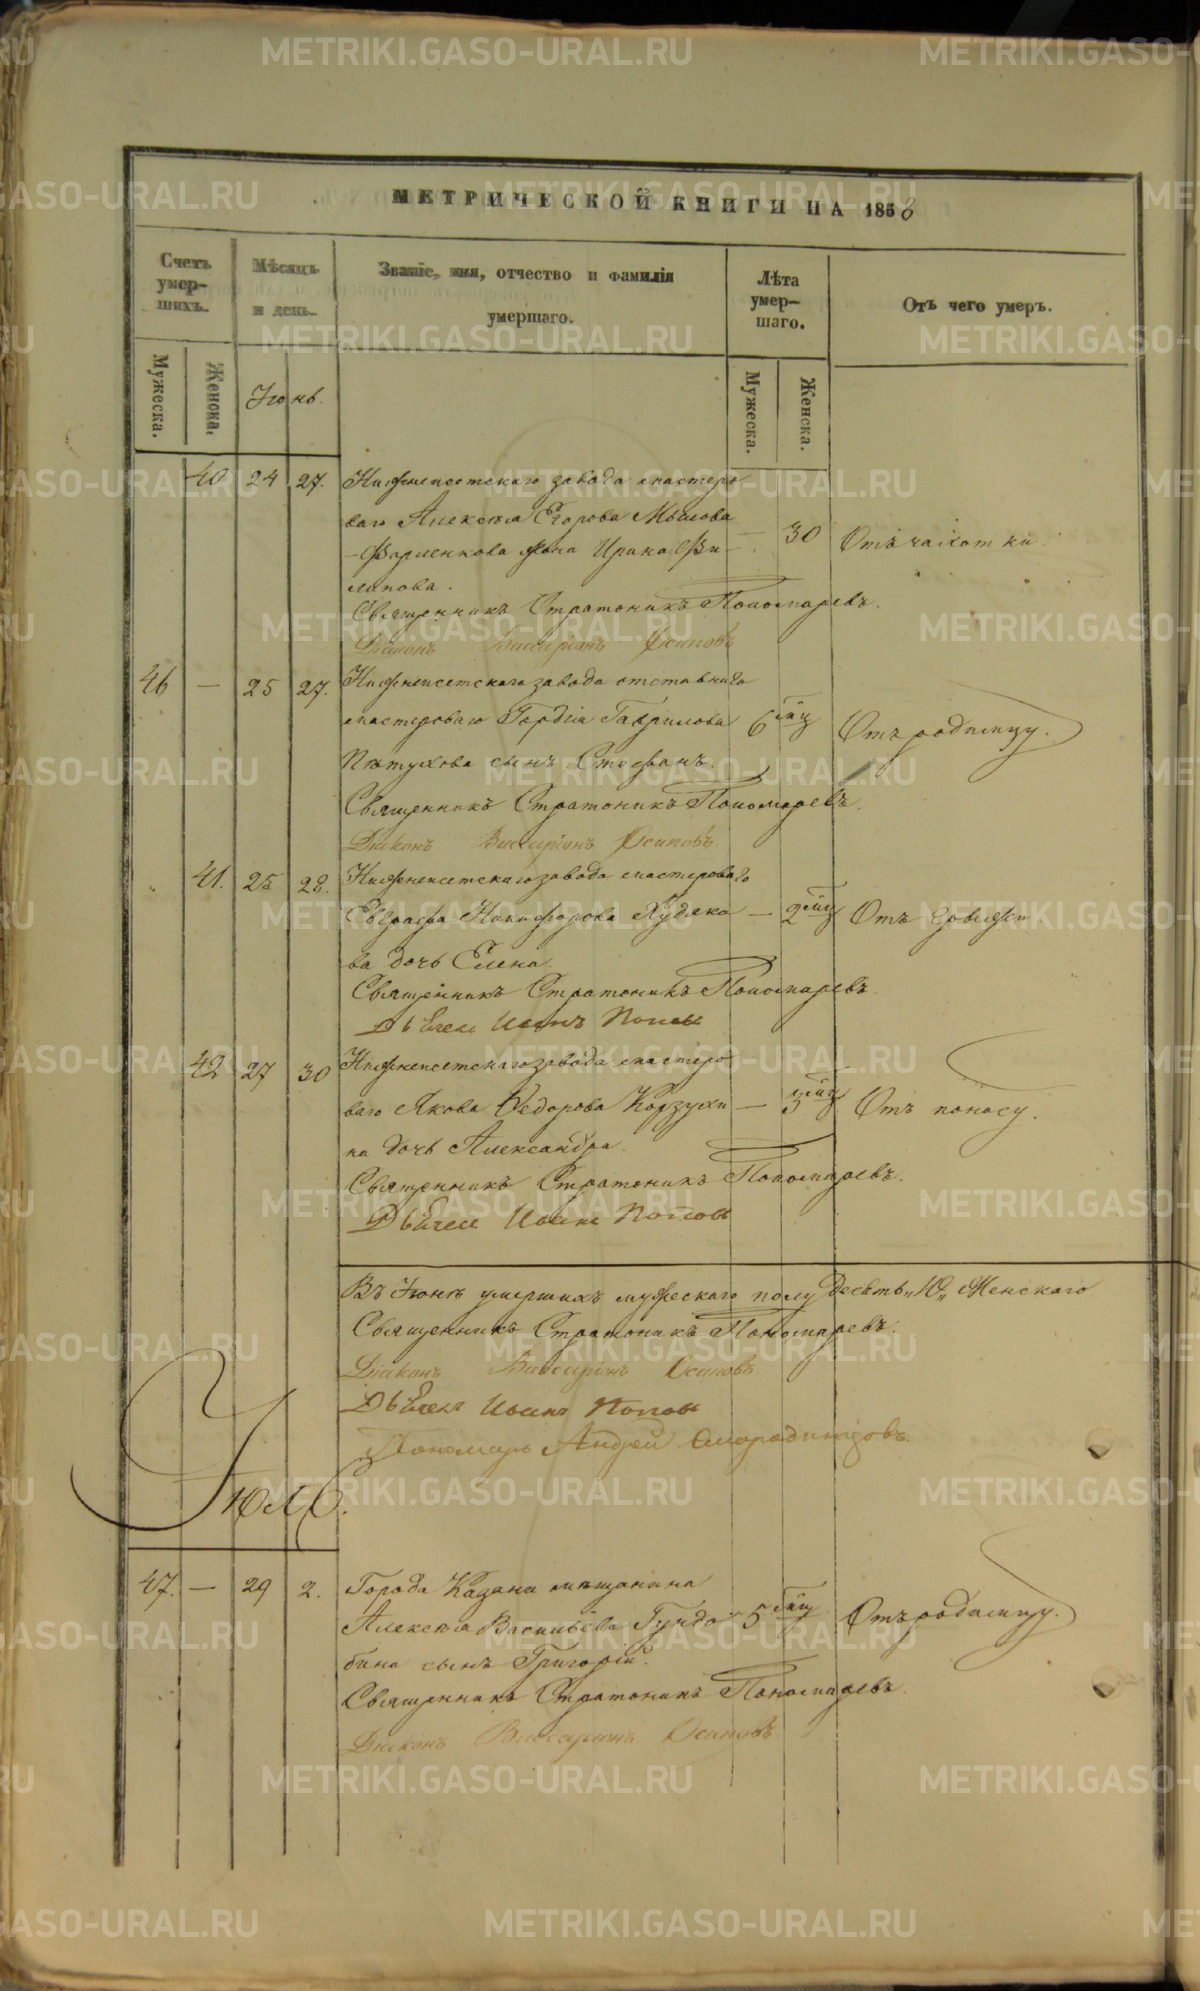 МЕТРИЧЕСКОЙ КНИГИ НА 1858
Счетъ умер- шихъ.
Мѣсяцъ и день.
Званіе, имя, отчество и фамилія умершаго.
Лѣта умер- шаго.
Отъ чего умеръ.
Мужеска.
Женска.
Іюнь.
Мужеска.
Женска.
40 24 27. Нижнеисетскаго завода мастеро
ваго Алексѣя Егорова
жена Ирина Фи — 30 Отъ чахотки
липова.
Священникъ Стратоникъ Пономаревъ.
Діаконъ Виссаріонъ Осиповъ
46 — 25 27. Нижнеисетскаго завода отставнаго
мастероваго Гордѣя Гаврилова 6 Отъ родимцу.
Пѣтухова сынъ Стефанъ.
Священникъ Стратоникъ Пономаревъ.
Діаконъ Виссаріонъ Осиповъ
41. 25 28. Нижнеисетскаго завода мастероваго
Евграфа Никифорова Худяко — 2 Отъ
ва дочь Елена.
Священникъ Стратоникъ Пономаревъ.
Дьячекъ Иоанъ Поповъ
42 27 30 Нижнеисетскаго завода мастеро
ваго Якова Ѳедорова Корзухи — 5 Отъ поносу.
на дочь Александра.
Священникъ Стратоникъ Пономаревъ.
Дьячекъ Иоанъ Поповъ
Въ Іюнѣ умершихъ мужескаго полу десять „10„ Женскаго
Священникъ Стратоникъ Пономаревъ.
Діаконъ Виссаріонъ Осиповъ
Дьячекъ Иоанъ Поповъ
Пономарь Андрей Смородинцовъ.
Іюль.
47. — 29 2. Города Казани мѣщанина
Алексѣя Васильева Гундо 5 Отъ родимцу.
бина сынъ Григорій.
Священникъ Стратоникъ Пономаревъ.
Діаконъ Виссаріонъ Осиповъ
METRIKI.GASO-URAL.RU